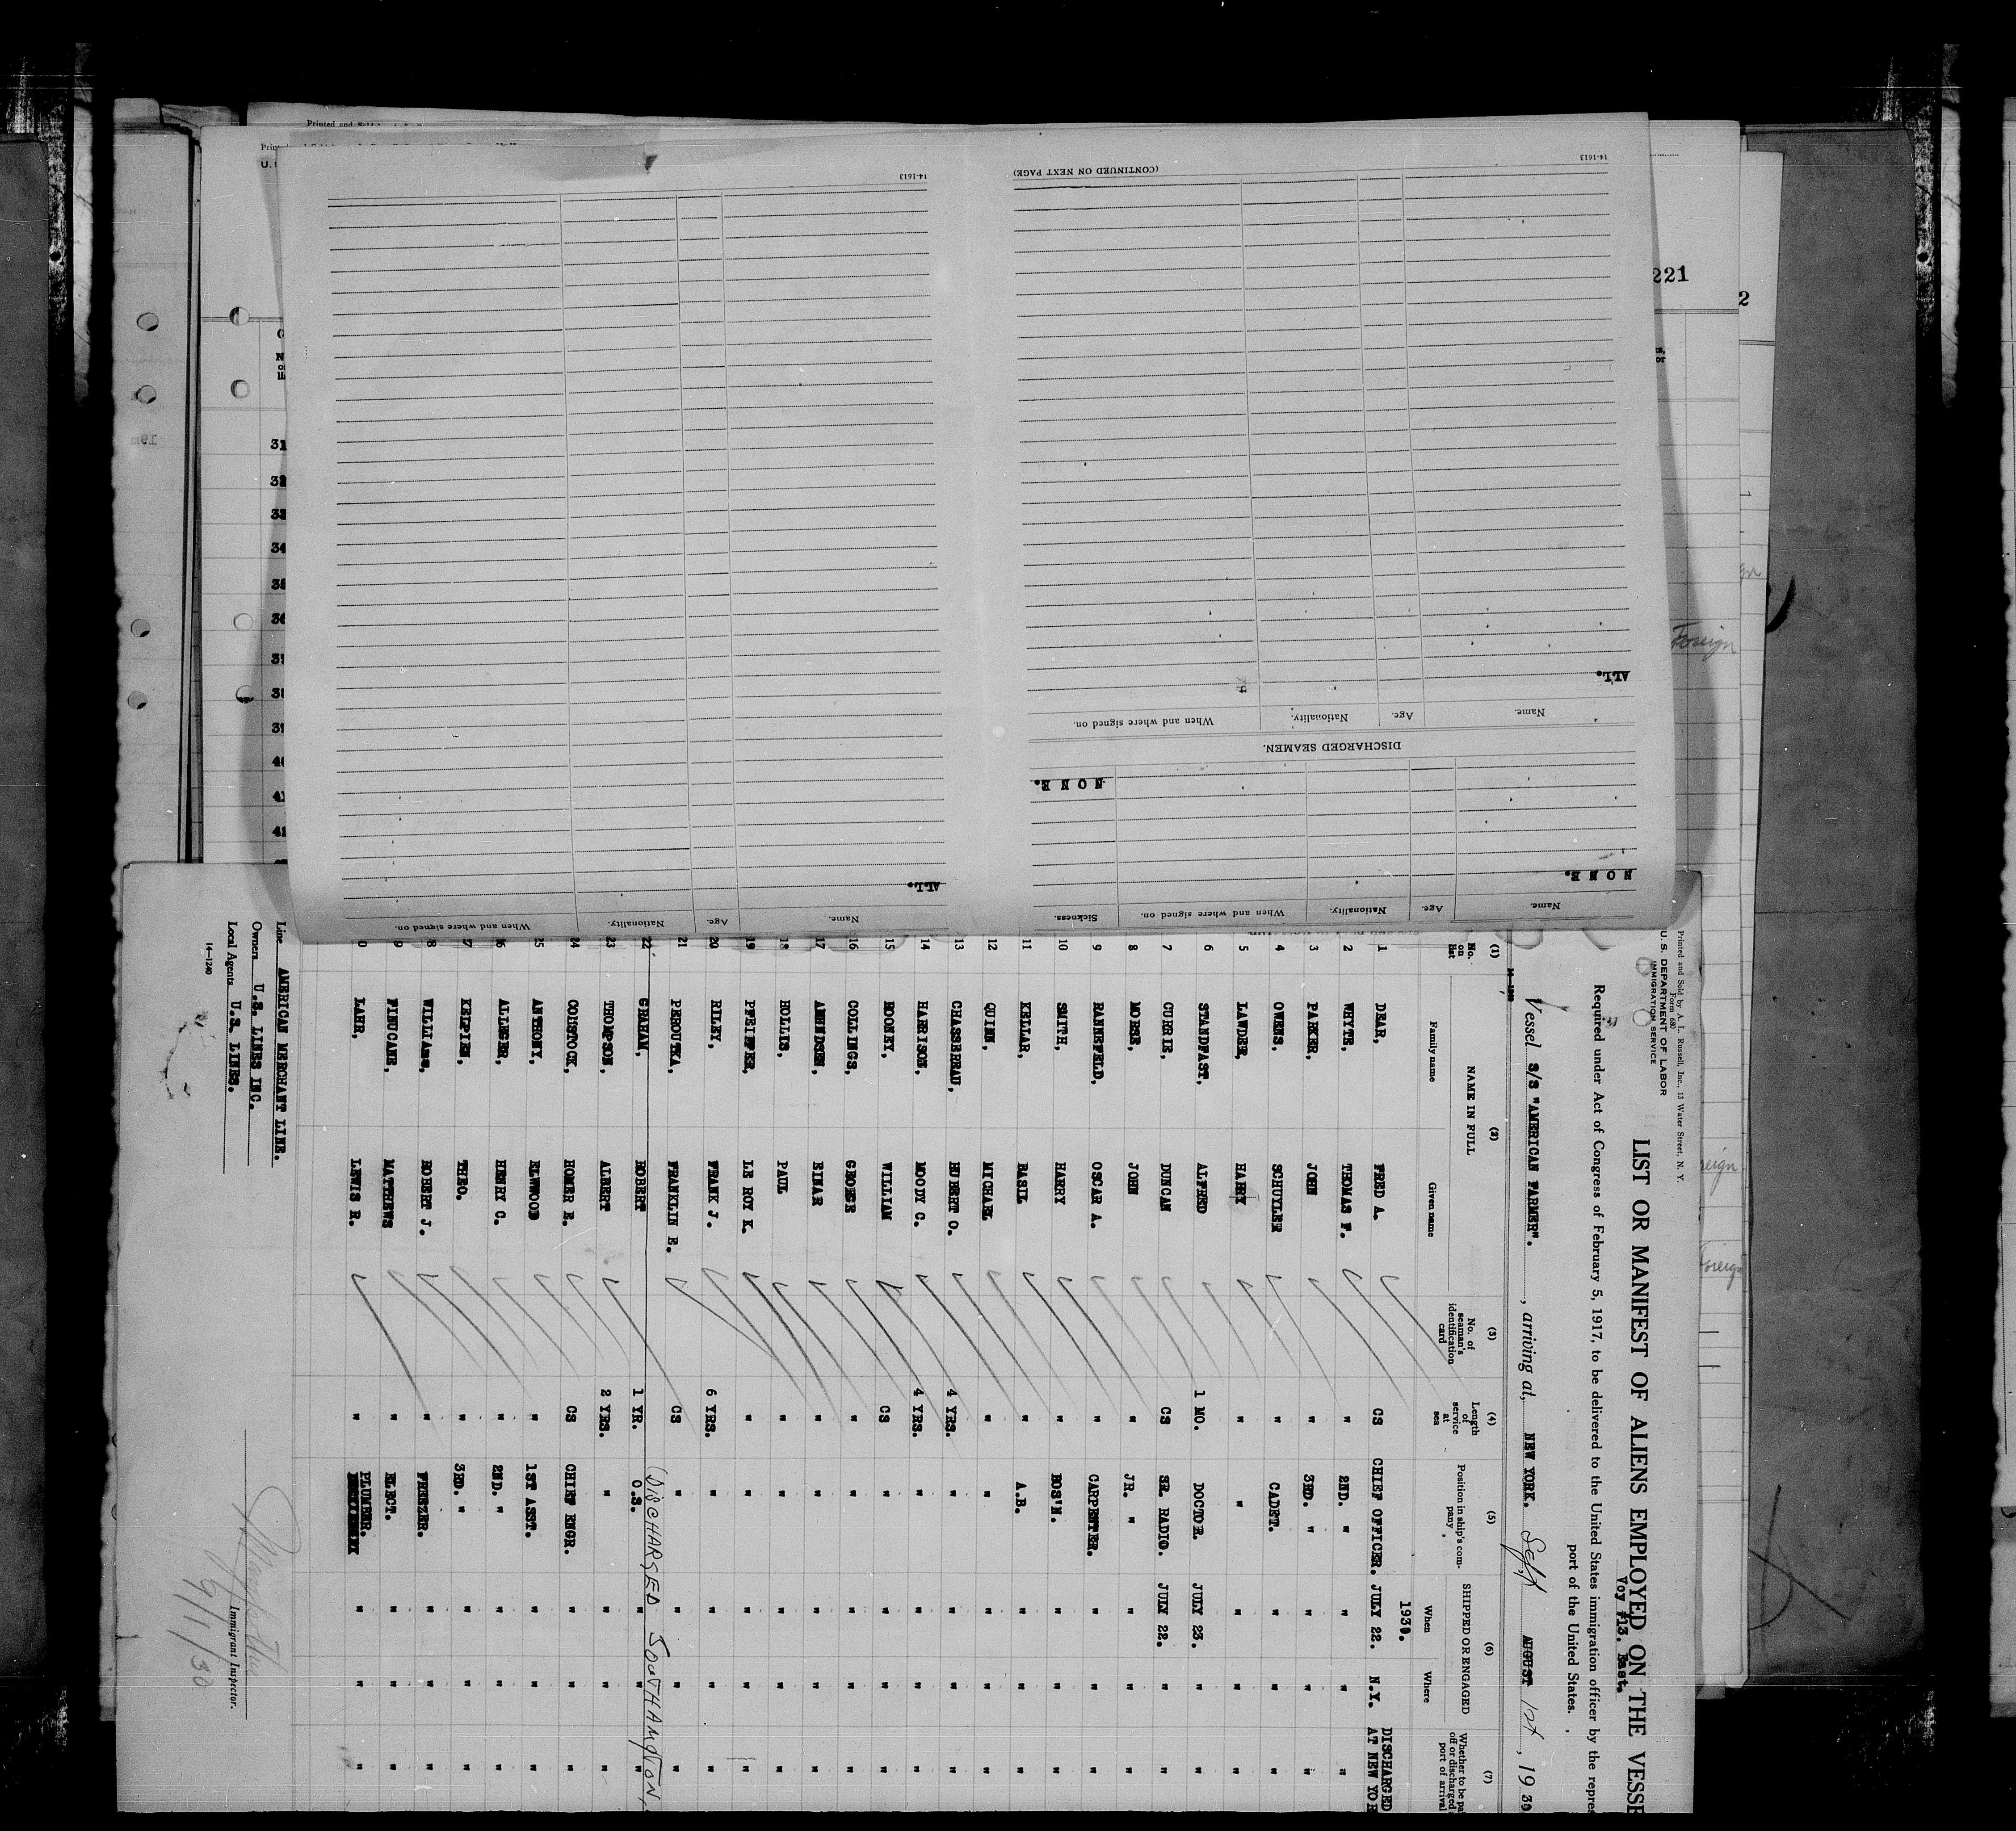 Printed and Sold by A. L. Russell, Inc., 13 Water Street, N. Y.
Form 680
U. S. DEPARTMENT OF LABOR
IMMIGRATION SERVICE
LIST OR MANIFEST OF ALIENS EMPLOYED ON THE VESSE
Voy #13. East.
Required under Act of Congress of February 5, 1917, to be delivered to the United States immigration officer by the repres
port of the United States.
Vessel S/S "AMERICAN FARMER". , arriving at, NEW YORK. Sept AUGUST 1st , 19 30
(1) (2) (3) (4) (5) (6) (7)
No. on list NAME IN FULL Family name Given name No. of seaman's identification card Length of service at sea Position in ship's company SHIPPED OR ENGAGED When Where Whether to be pai off or discharged port of arrival
1930.
1 DEAR, FRED A. CS CHIEF OFFICER. JULY 22. N.Y. DISCHARGED AT NEW YOR
2 WHYTE, THOMAS F. " 2ND. " " " "
3 PARKER, JOHN " 3RD. " " " "
4 OWENS, SCHUYLER " CADET. " " "
5 LAWDER, HARRY " " " " "
6 STANDFAST, ALFRED 1 MO. DOCTOR. JULY 23. " "
7 CURRIE, DUNCAN CS SR. RADIO. JULY 22. " "
8 MORSE, JOHN " JR. " " " "
9 RANNEFELD, OSCAR A. " CARPENTER. " " "
10 SMITH, HARRY " BOS'N. " " "
11 KELLAR, BASIL " A.B. " " "
12 QUINN, MICHAEL " " " " "
13 CHASSEREAU, HUBERT O. 4 YRS. " " " "
14 HARRISON, MOODY C. 4 YRS. " " " "
15 ROONEY, WILLIAM CS " " " "
16 COLLINGS, GEORGE " " " " "
17 AMUNDSEN, EINAR " " " " "
18 HOLLIS, PAUL " " " " "
19 PFEIFFER, LE ROY K. " " " " "
20 RILEY, FRANK J. 6 YRS. " " " "
21 PEROUTKA, FRANKLIN E. CS " " " "
22 GRAHAM, ROBERT 1 YR. O.S. " " "
(DISCHARGED SOUTHAMPTON,
23 THOMPSON, ALBERT 2 YRS. " " " "
24 COMSTOCK, HOMER E. CS CHIEF ENGR. " " "
25 ANTHONY, ELWWOOD " 1ST ASST. " " "
26 ALLEGER, HENRY C. " 2ND. " " " "
27 KEIPIEN, THEO. " 3RD. " " " "
28 WILLIAMS, ROBERT J. " FREEZER. " " "
29 FINUCANE, MATTHEWS " ELECT. " " "
30 LAHR, LEWIS R. " PLUMBER. " " "
Line AMERICAN MERCHANT LINE.
Owners U.S. LINES INC.
Local Agents U.S. LINES.
14-1240
Immigrant Inspector.
9/1/30
14-1613
Name. Age. Nationality. When and where signed on. Sickness.
NONE. NONE.
DISCHARGED SEAMEN.
Name. Age. Nationality. When and where signed on.
ALL.
(CONTINUED ON NEXT PAGE)
14-1613
Name. Age. Nationality. When and where signed on.
ALL.
14-1613
Printed and Sold
U. S
31
32
33
34
35
36
37
38
39
40
41
42
221
2
Foreign
reign
Foreign